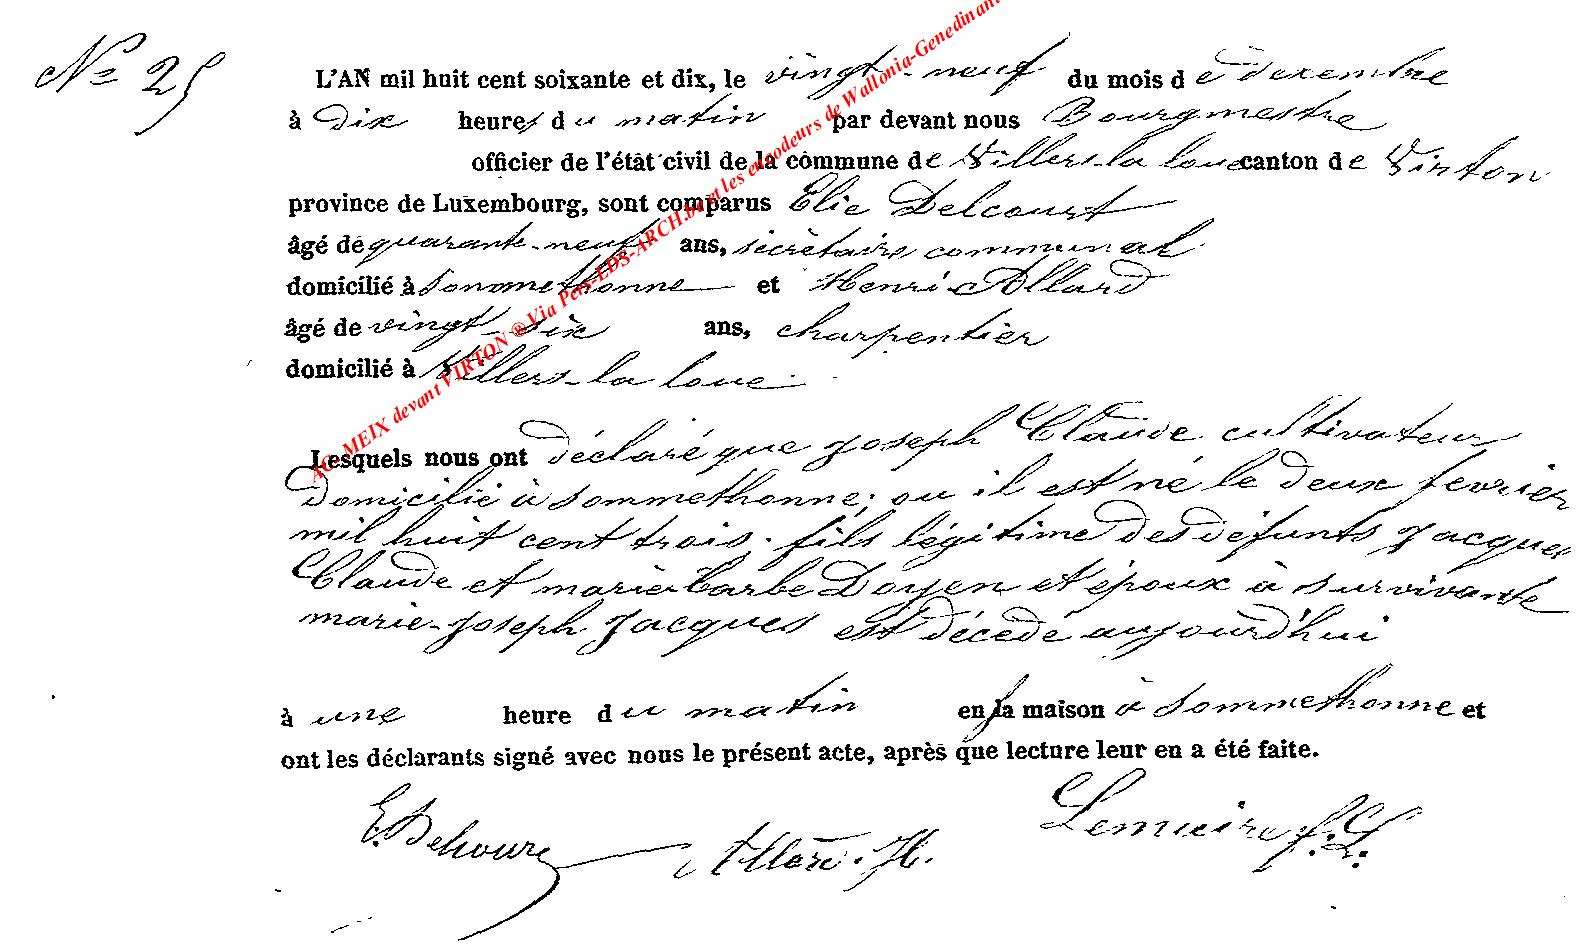 N° 25
L'AN mil huit cent soixante et dix, le vingt-neuf du mois de dexembre
à dix heures du matin par devant nous Bourgmestre
officier de l'état civil de la commune de Villers-la loue canton de Virton
province de Luxembourg, sont comparus Elie Delcourt
âgé de quarante-neuf ans, secrétaire communal
domicilié à Sommethonne et Henri Allard
âgé de vingt-six ans, charpentier
domicilié à Villers-la loue
Lesquels nous ont déclaré que Joseph Claude cultivateur
domicilié à Sommethonne, ou il est né le deux fevrier
mil huit cent trois, fils légitime des défunts Jacques
Claude et marie-barbe Doyen et époux à survivante
marie-Joseph Jacques est décedé aujourd'hui
à une heure du matin en la maison à Sommethonne et
ont les déclarants signé avec nous le présent acte, après que lecture leur en a été faite.
E. Delcourt Allard. H.
AC MEIX devant VIRTON ® Via Pers-EDS-ARCH.be et les encodeurs de Wallonia-Genedinant